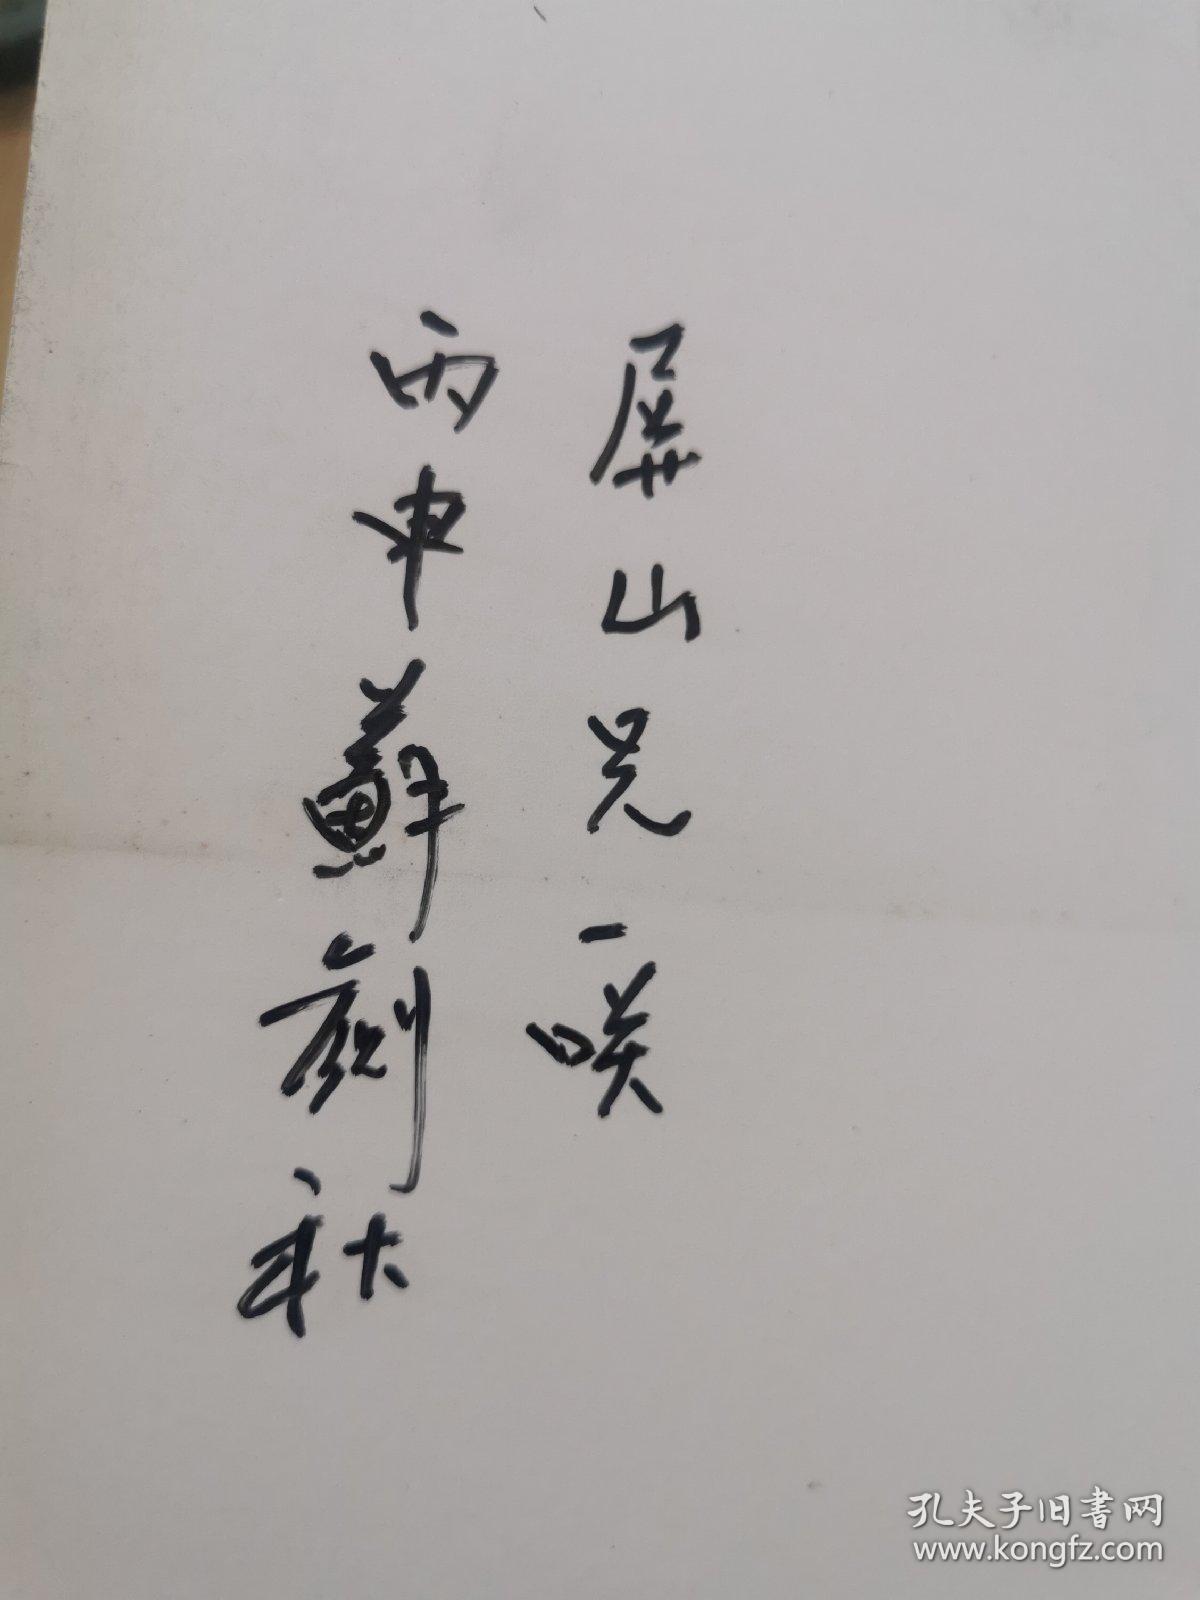 屏山兄一咲
丙申蘇劍秋
孔夫子旧書网
www.kongfz.com